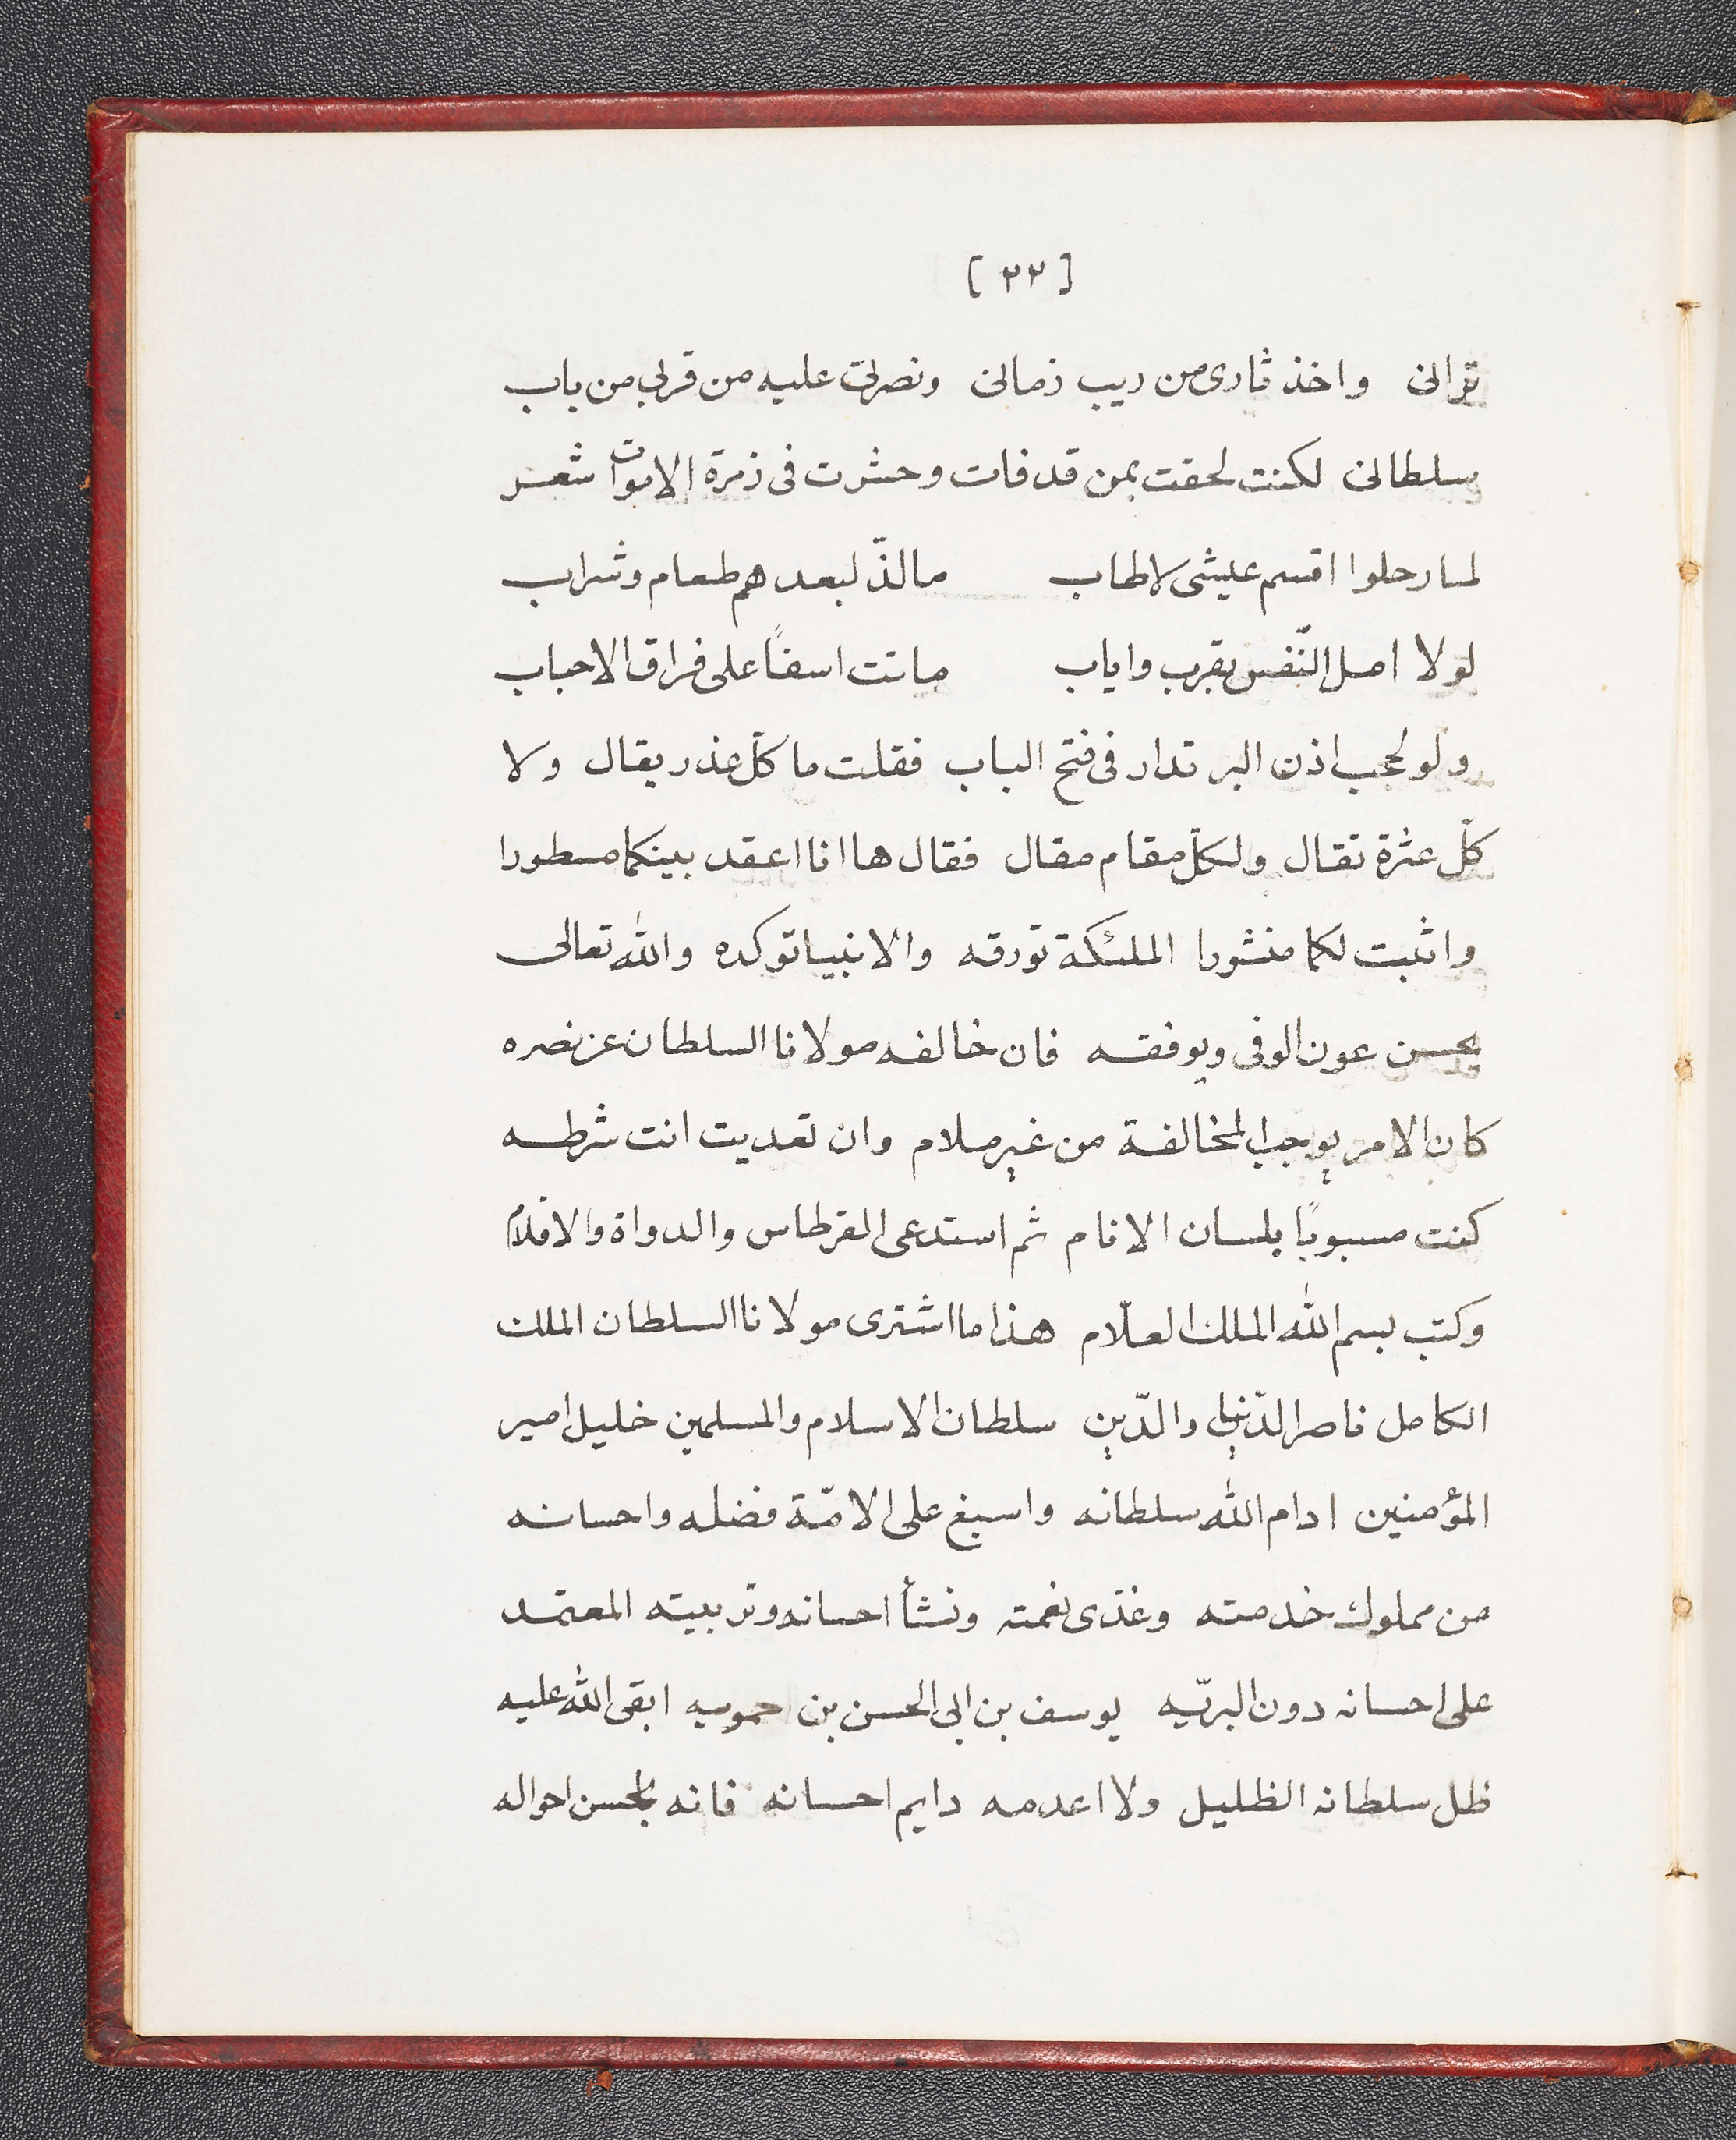 [ ٣٣ ]
ترانى واخذ ثارى من ريب زمانى ونصرنى عليه من قربى من باب
سلطانى لكنت لحقت بمن قد فات وحشرت فى زمرة الاموات شعر
لما رحلوا اقسم عيشى لاطاب مالذّ لبعدهم طعام وشراب
لولا امل النّفس بقرب واياب ماتت اسفًا على فراق الاحباب
ولو لحجب اذن البرتدار فى فتح الباب فقلت ما كلّ عذر يقال ولا
كلّ عثرة تقال ولكلّ مقام مقال فقال ها انا اعقد بينكما مسطورا
واثبت لكما منشورا الملئكة تورقه والانبيا توكده والله تعالى
يحسن عون الوفى ويوفقه فان خالفه مولانا السلطان عز نصره
كان الامر يوجب المخالفة من غير ملام وان تعديت انت شرطه
كنت مسبوبًا بلسان الانام ثم استدعى القرطاس والدواة والاقلام
وكتب بسم الله الملك العلّام هذا ما اشترى مولانا السلطان الملك
الكامل ناصر الدّنيا والدّين سلطان الاسلام والمسلمين خليل امير
المؤمنين ادام الله سلطانه واسبغ على الامّة فضله واحسانه
من مملوك خدمته وغذى نعمته ونشأ احسانه وتربيته المعتمد
على احسانه دون البريّه يوسف بن ابى الحسن بن حمويه ابقى الله عليه
ظل سلطانه الظليل ولا اعدمه دايم احسانه فانه احواله